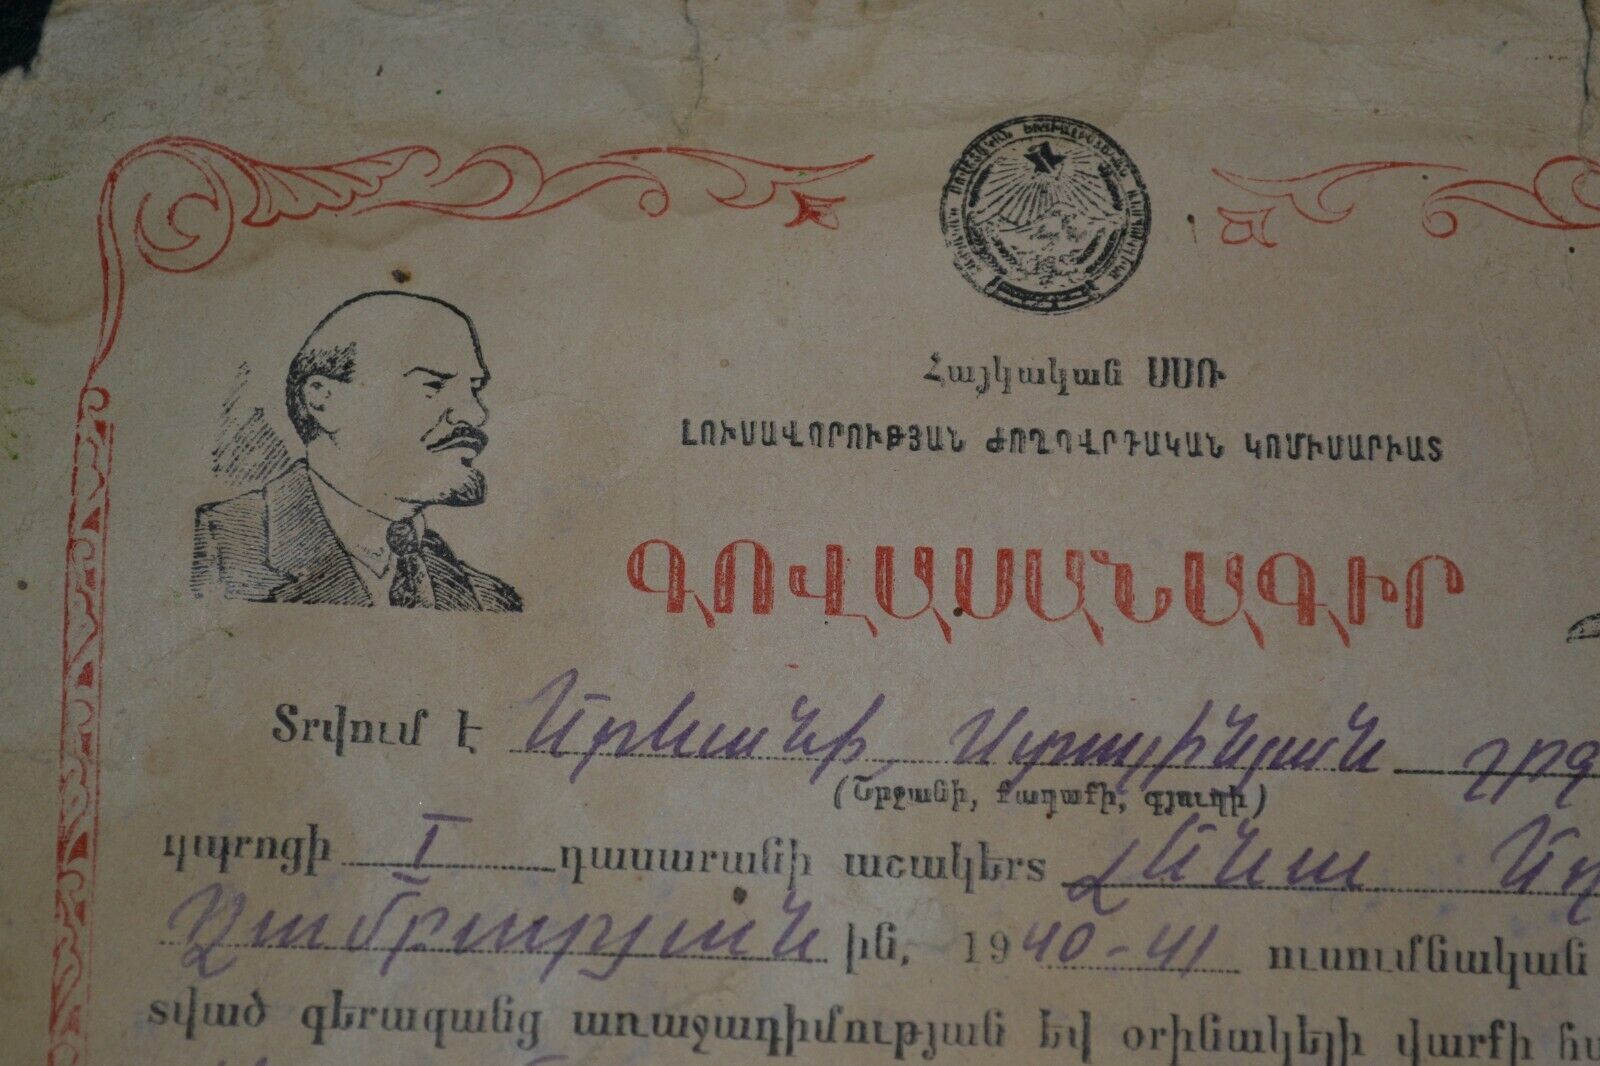 Հայկական ՍՍՌ
ԼՈՒՍԱՎՈՐՈՒԹՅԱՆ ԺՈՂՈՎՐԴԱԿԱՆ ԿՈՄԻՍԱՐԻԱՏ
ԳՈՎԱՍԱՆԱԳԻՐ
Տրվում է Երևանի Ստալինյան շրջ
(Շրջանի, քաղաքի, գյուղի)
դպրոցի I դասարանի աշակերտ Լենա
Ջամբարյան ին, 1940-41 ուսումնական
տված գերազանց առաջադիմության եվ օրինակելի վարքի հա